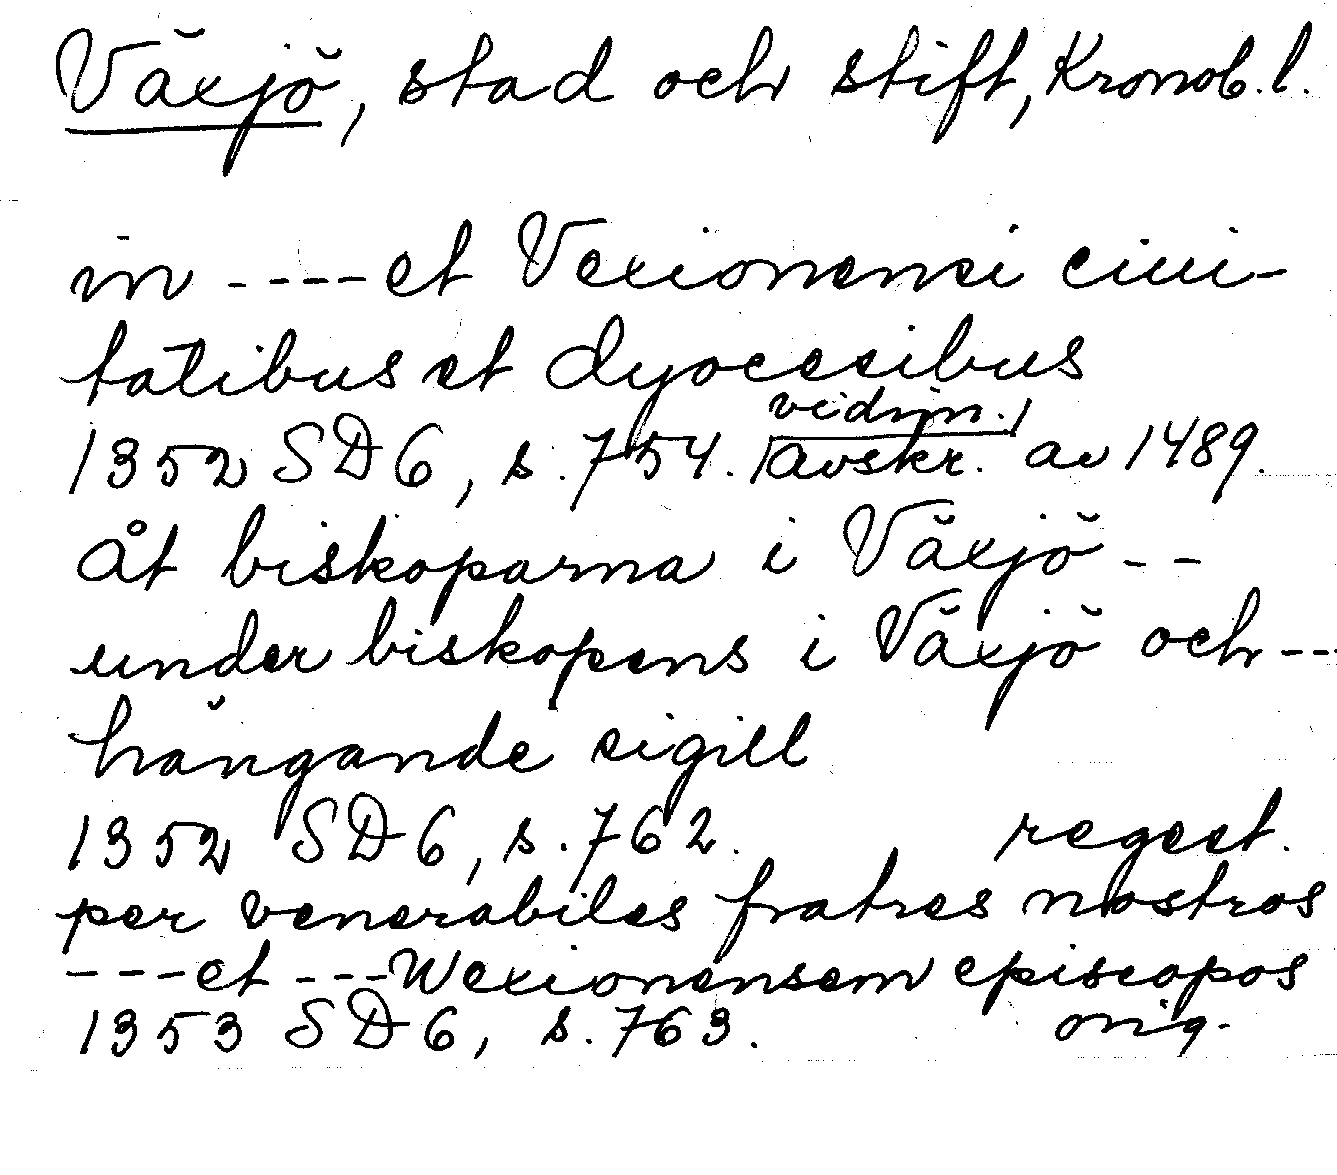 Växjö, stad och stift, Kronob. l.
in ---- et Vexionensi ciui-
tatibus et dyocesibus
vidim.
1352 SD 6, s. 754. /avskr./ av 1489.
Åt biskoparna i Växjö --
under biskopens i Växjö och ---
hängande sigill
1352 SD 6, s. 762. regest.
per venerabiles fratres nostros
---- et --- Wexionensem episcopos
1353 SD 6, s. 763. orig.